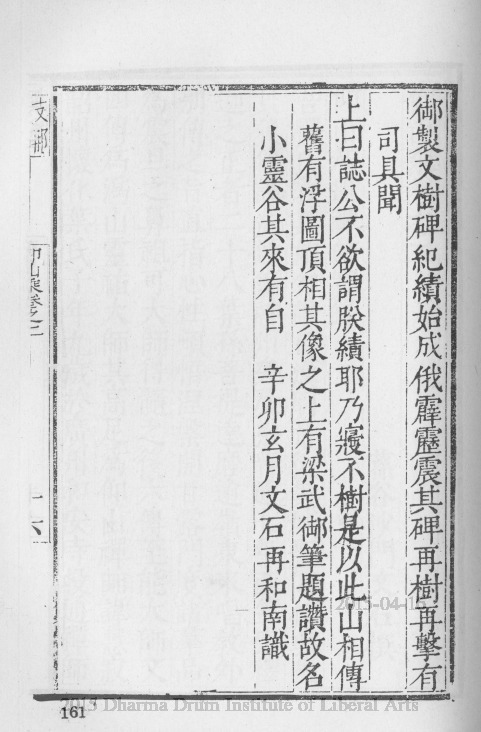 御製文樹碑紀績始成俄霹靂震其碑再樹再擊有
司具聞
上曰誌公不欲謂朕績耶乃寢不樹是以此山相傳
舊有浮圖頂相其像之上有梁武御筆題讚故名
小靈谷其來有自　辛卯玄月文石再和南識
支那
卷之二
二六
2015-04-15
161
2015 Dharma Drum Institute of Liberal Arts